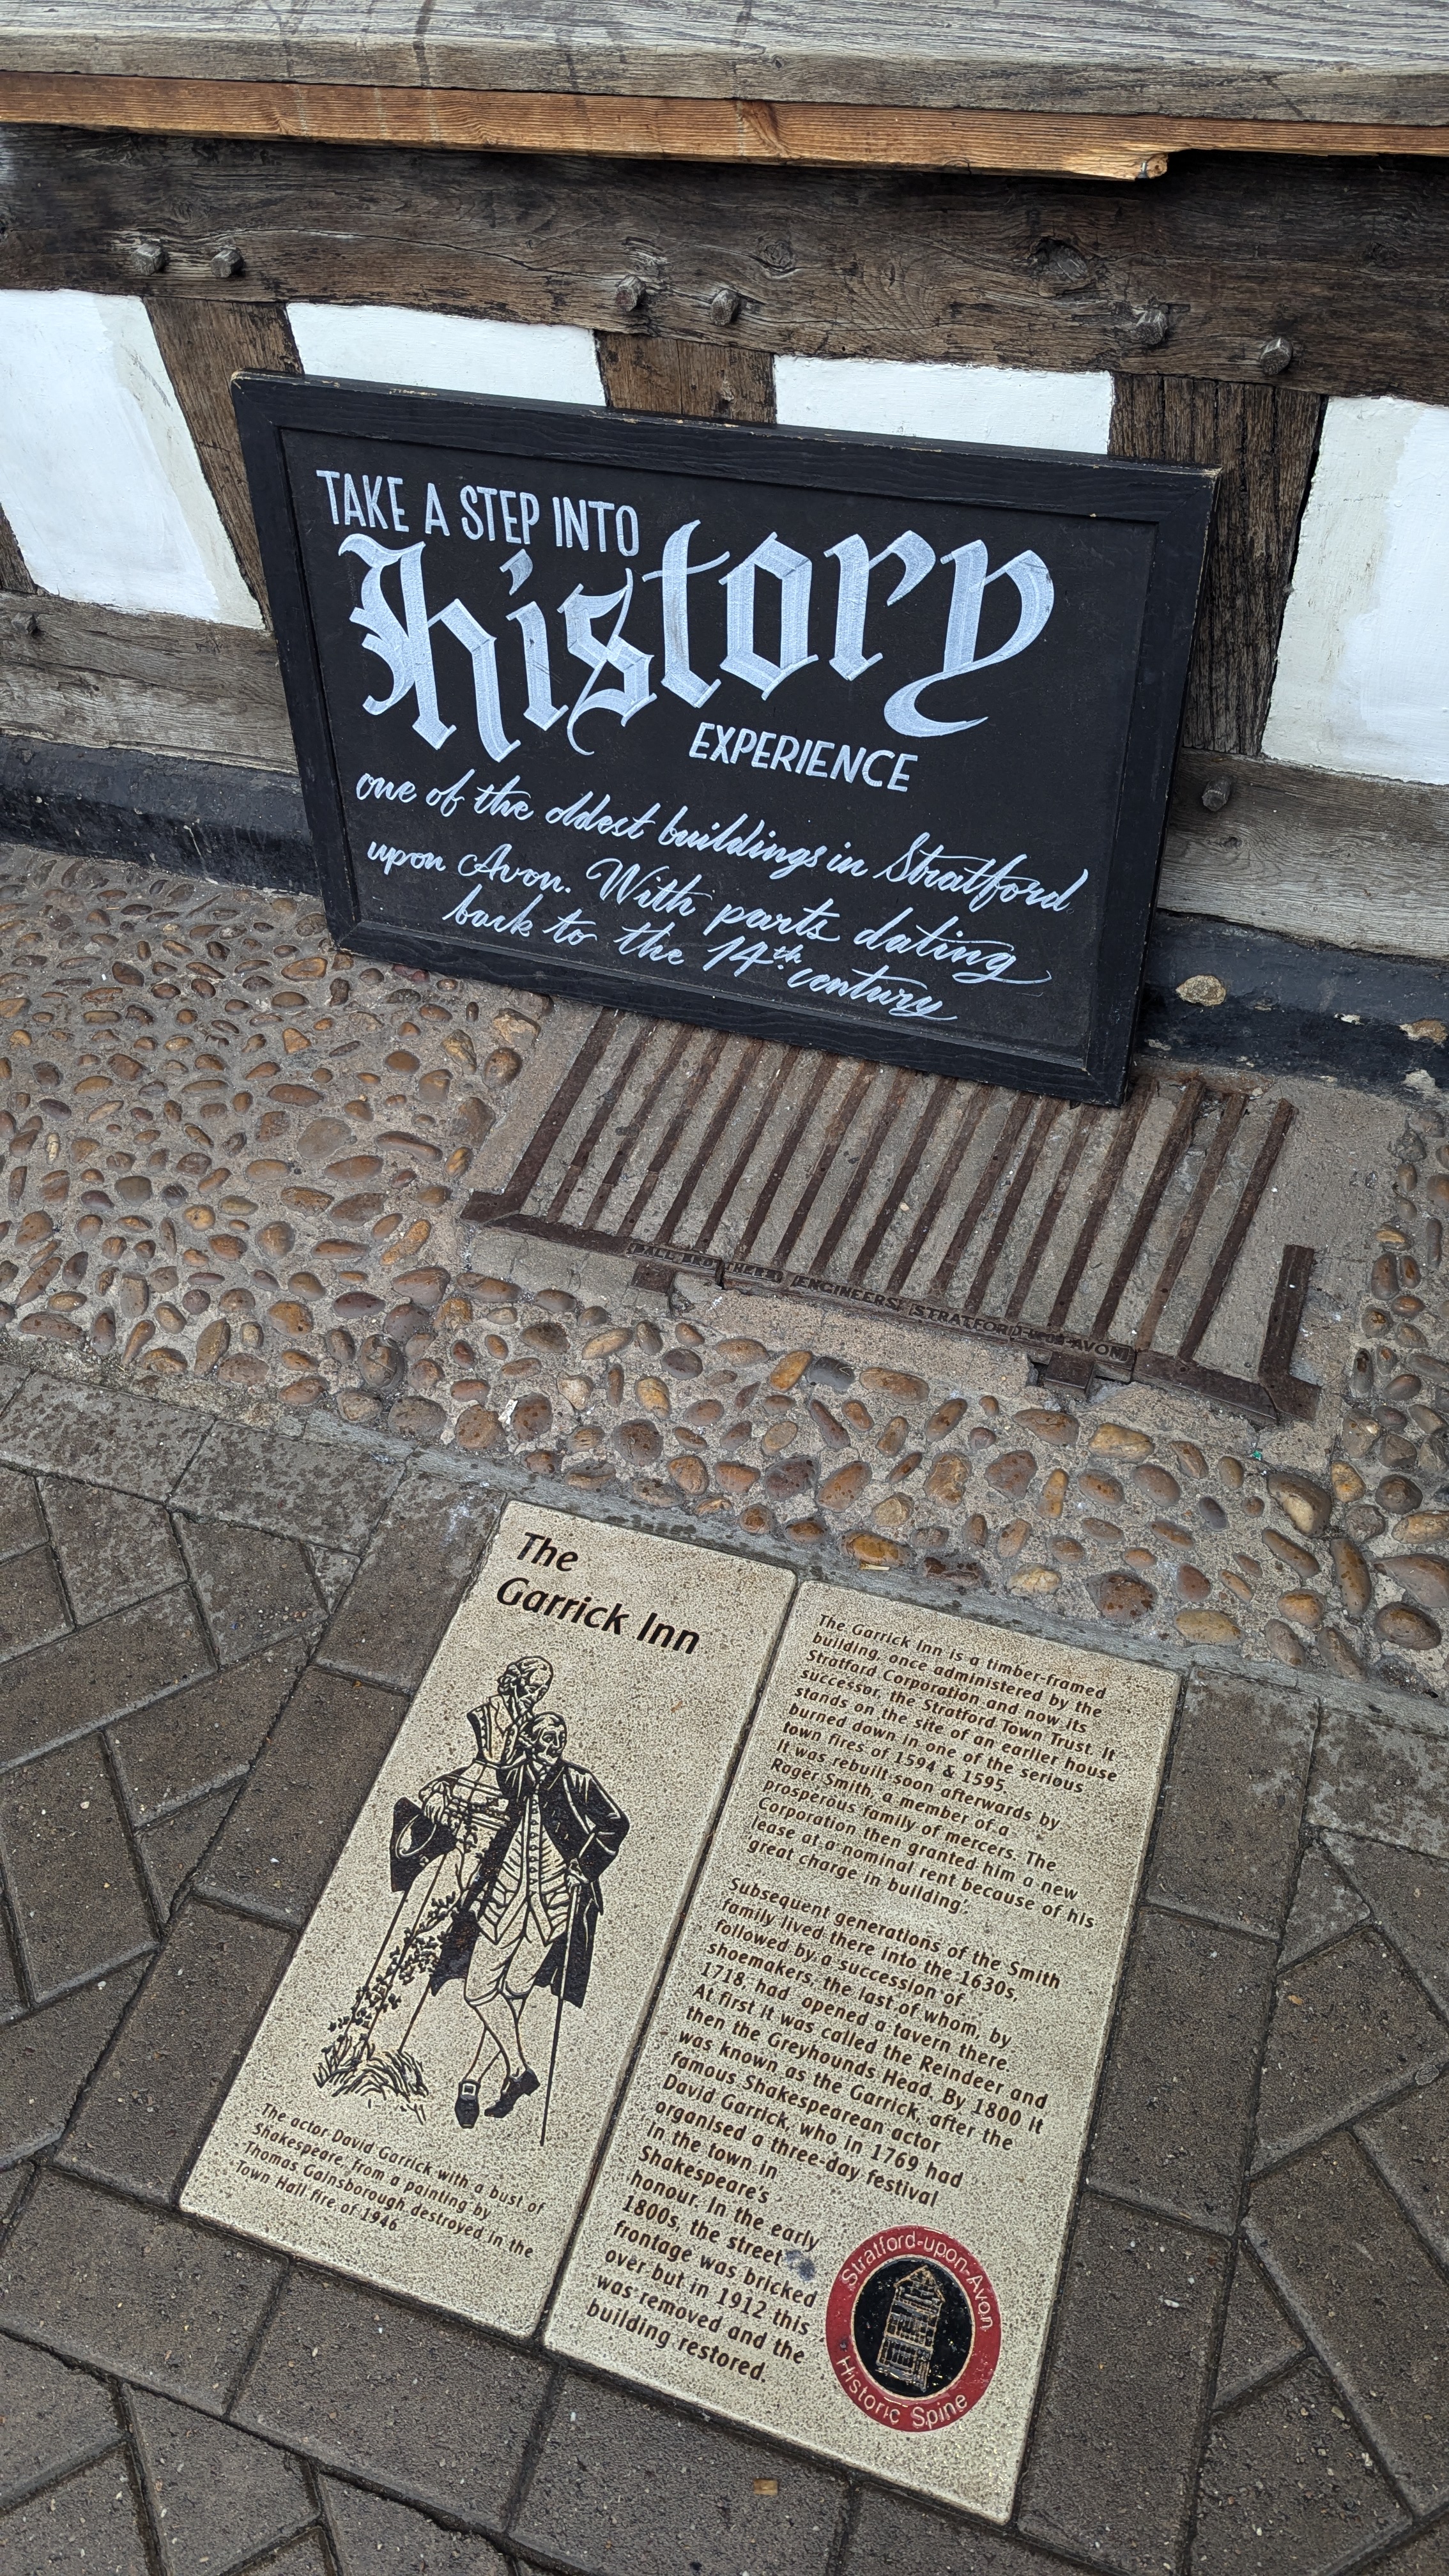 TAKE A STEP INTO
history
EXPERIENCE
one of the oldest buildings in Stratford
upon Avon. With parts dating
back to the 14th century
BALL BROTHERS ENGINEERS STRATFORD-UPON-AVON
The
Garrick Inn
The actor David Garrick with a bust of
Shakespeare, from a painting by
Thomas Gainsborough destroyed in the
Town Hall fire of 1946
The Garrick Inn is a timber-framed
building, once administered by the
Stratford Corporation and now its
successor, the Stratford Town Trust. It
stands on the site of an earlier house
burned down in one of the serious
town fires of 1594 & 1595.
It was rebuilt soon afterwards by
Roger Smith, a member of a
prosperous family of mercers. The
Corporation then granted him a new
lease at a nominal rent because of his
great charge in building'.
Subsequent generations of the Smith
family lived there into the 1630s,
followed by a succession of
shoemakers, the last of whom, by
1718 had opened a tavern there.
At first it was called the Reindeer and
then the Greyhounds Head. By 1800 it
was known as the Garrick, after the
famous Shakespearean actor
David Garrick, who in 1769 had
organised a three-day festival
in the town in
Shakespeare's
honour. In the early
1800s, the street
frontage was bricked
over but in 1912 this
was removed and the
building restored.
Stratford-upon-Avon
Historic Spine